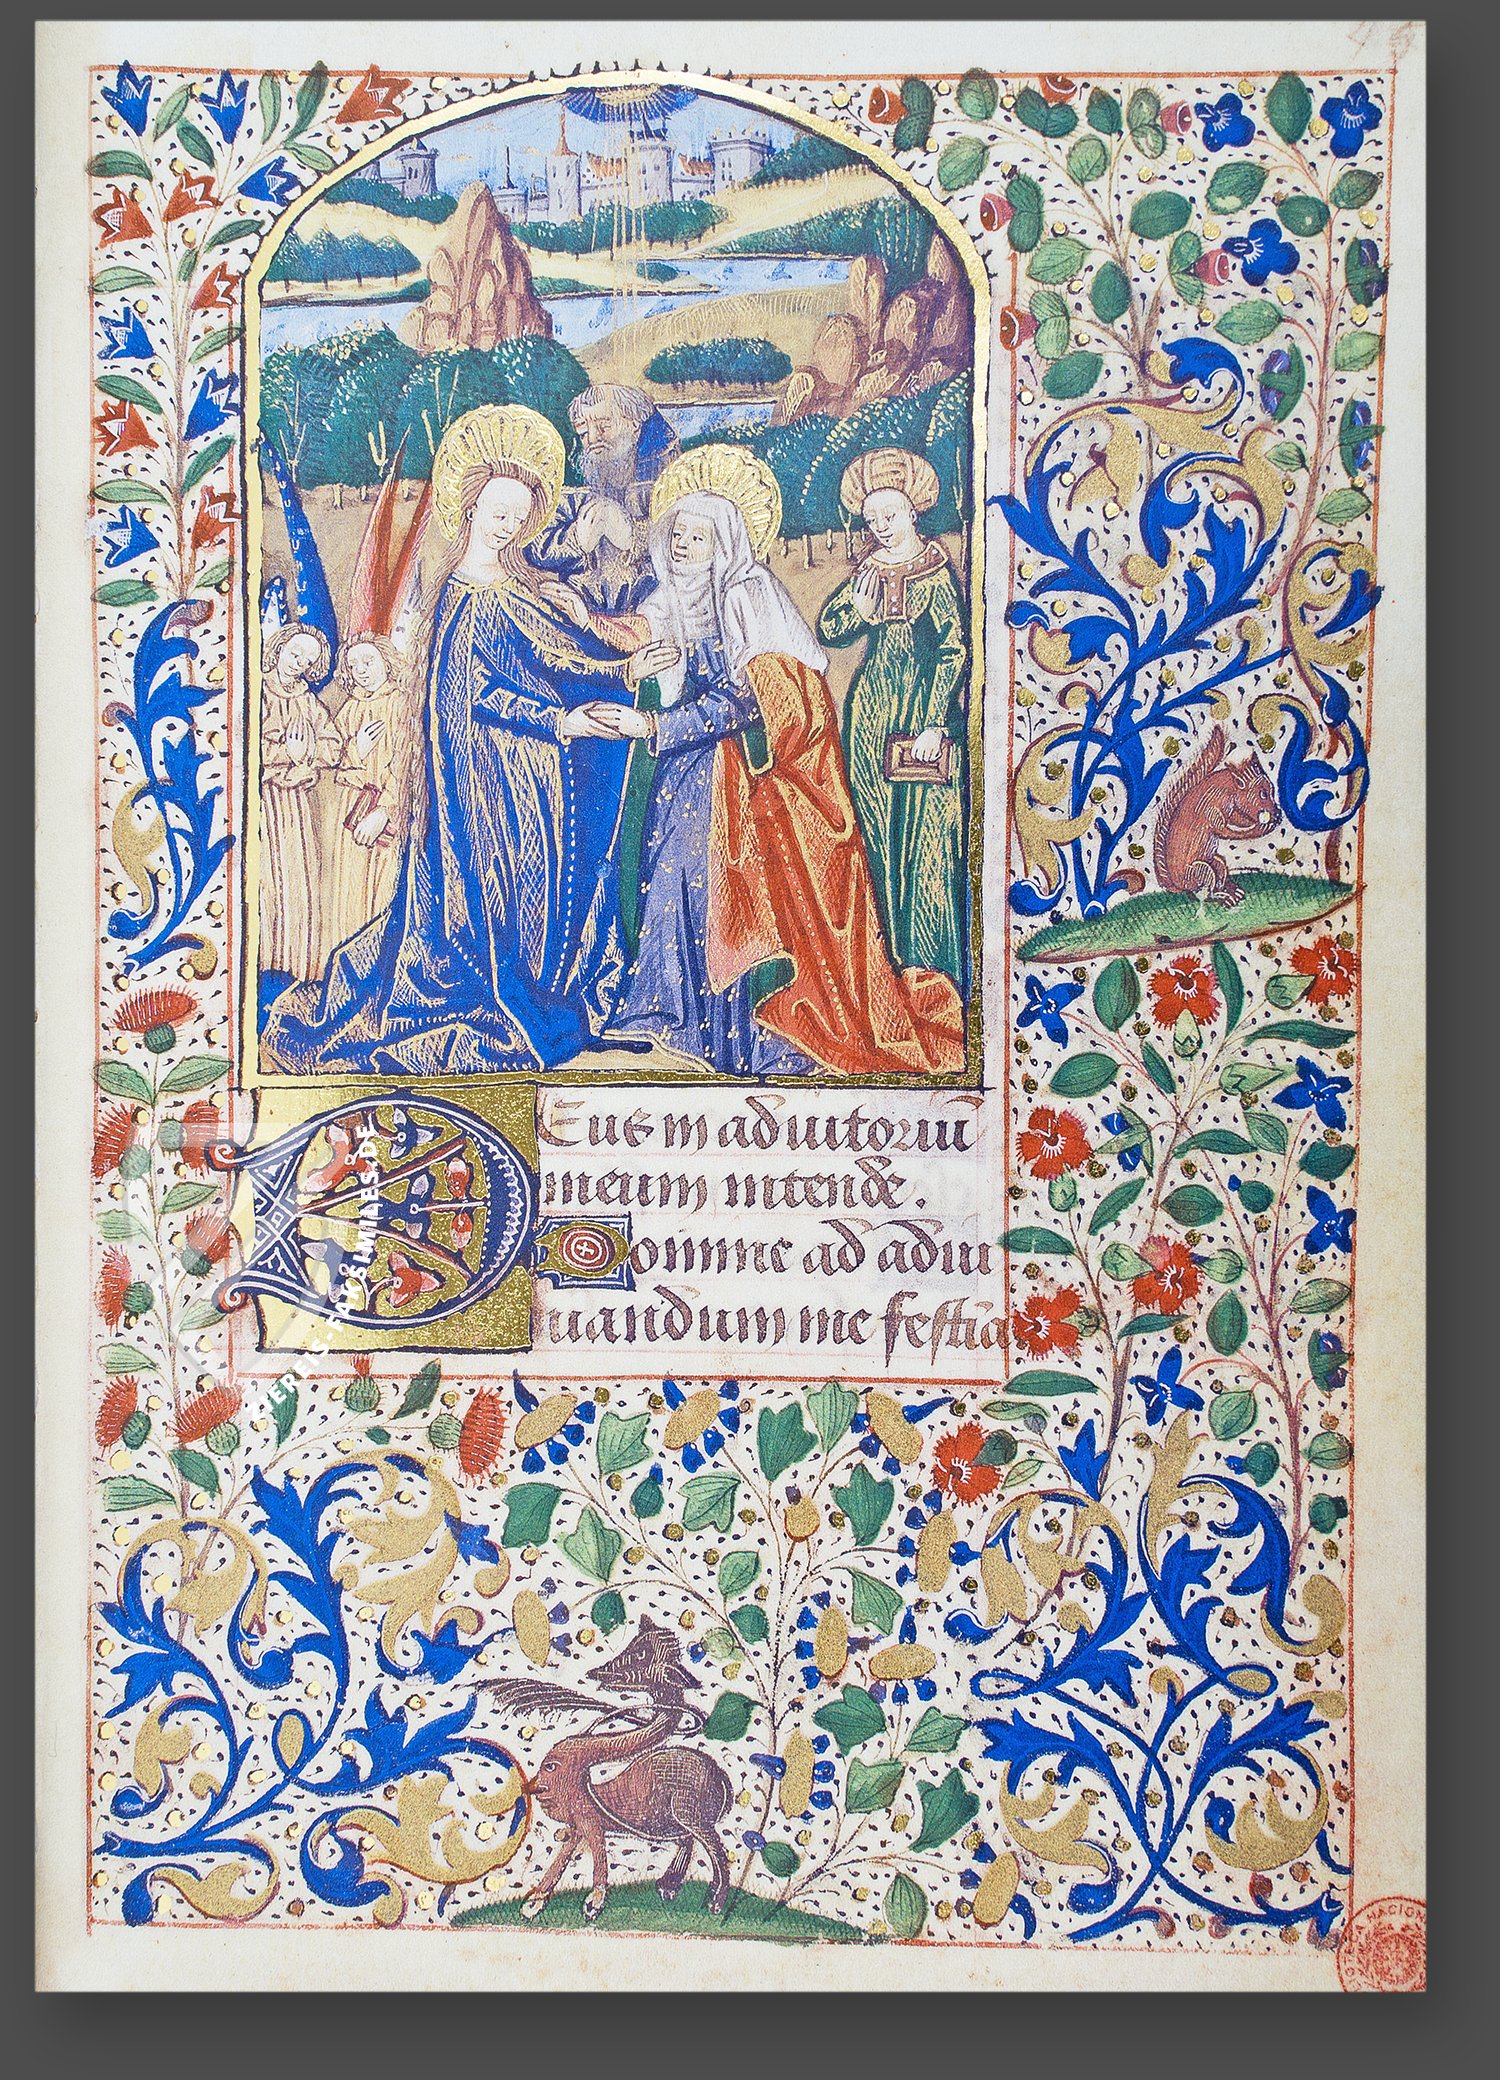 Deus in adiutoriu̅
meum intende.
Domine ad adiu
uandum me festina
ZIEREIS-FAKSIMILES.DE
NACION